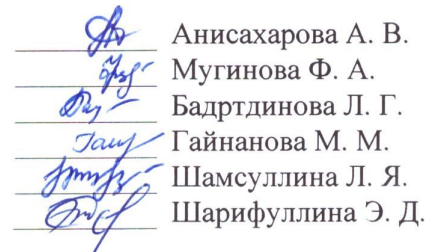 Анисахарова А. В.
Мугинова Ф. А.
Бадртдинова Л. Г.
Гайнанова М. М.
Шамсуллина Л. Я.
Шарифуллина Э. Д.